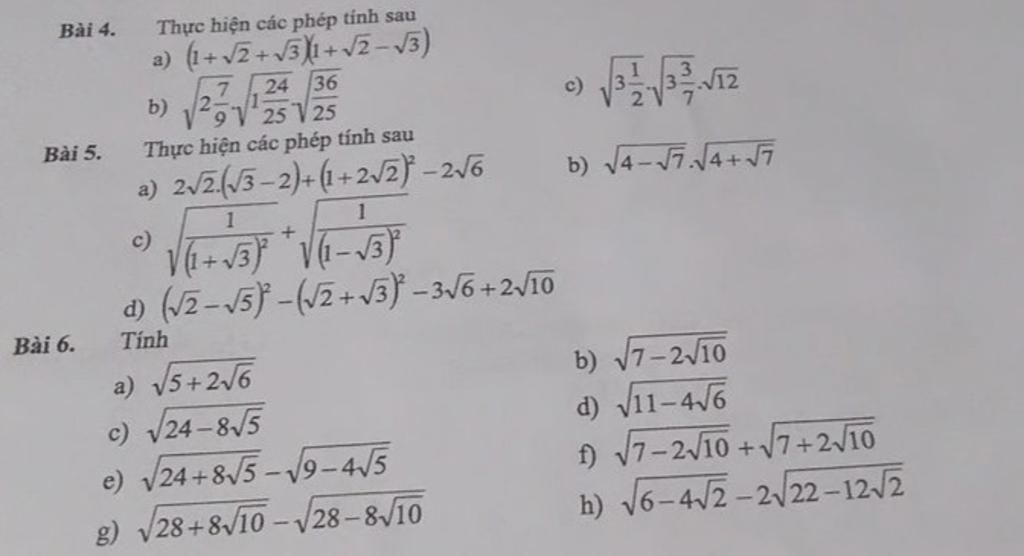 Bài 4. Thực hiện các phép tính sau
a) (1+√2+√3)(1+√2−√3)
b) √(2 7/9).√(1 24/25).√(36/25)
c) √(3 1/2).√(3 3/7).√12
Bài 5. Thực hiện các phép tính sau
a) 2√2.(√3−2)+(1+2√2)²−2√6
b) √(4−√7).√(4+√7)
c) √(1/(1+√3)²) + √(1/(1−√3)²)
d) (√2−√5)²−(√2+√3)²−3√6+2√10
Bài 6. Tính
a) √(5+2√6)
b) √(7−2√10)
c) √(24−8√5)
d) √(11−4√6)
e) √(24+8√5)−√(9−4√5)
f) √(7−2√10)+√(7+2√10)
g) √(28+8√10)−√(28−8√10)
h) √(6−4√2)−2√(22−12√2)